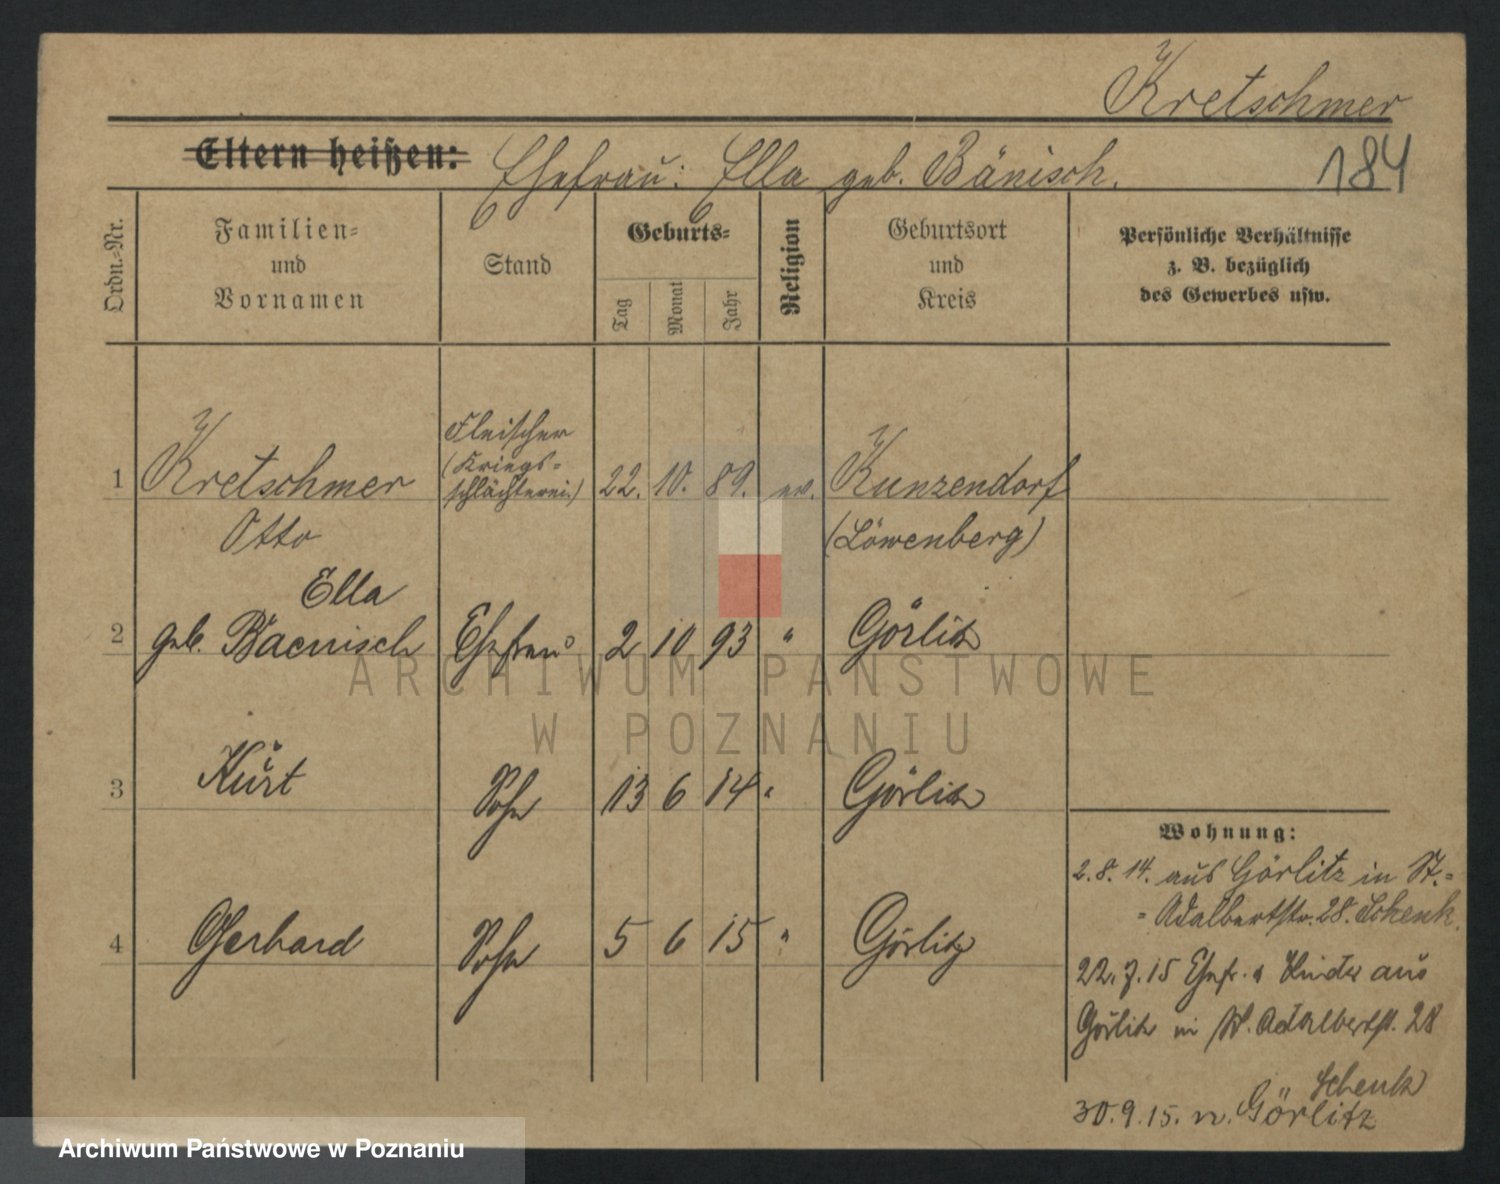 Kretschmer
Eltern heißen: Ehefrau: Ella geb. Bänisch.
184
Ordn.-Nr.
Familien-
und
Vornamen
Stand
Geburts-
Tag
Monat
Jahr
Religion
Geburtsort
und
Kreis
Persönliche Verhältnisse
z. B. bezüglich
des Gewerbes usw.
1 Kretschmer
Otto
Fleischer
(Kriegs-
schlächterei.)
22. 10. 89. ev. Kunzendorf
(Löwenberg)
Ella
2 geb. Baenisch Ehefrau 2 10 93 " Görlitz
3 Kurt Sohn 13 6 14 " Görlitz
4 Gerhard Sohn 5 6 15 " Görlitz
Wohnung:
2.8.14. aus Görlitz in St.-
- Adalbertstr. 28. Schenk.
22.7.15 Ehefr. u Kinder aus
Görlitz in St. Adalbertst. 28
Schenk
30.9.15. n. Görlitz
ARCHIWUM PAŃSTWOWE
W POZNANIU
Archiwum Państwowe w Poznaniu